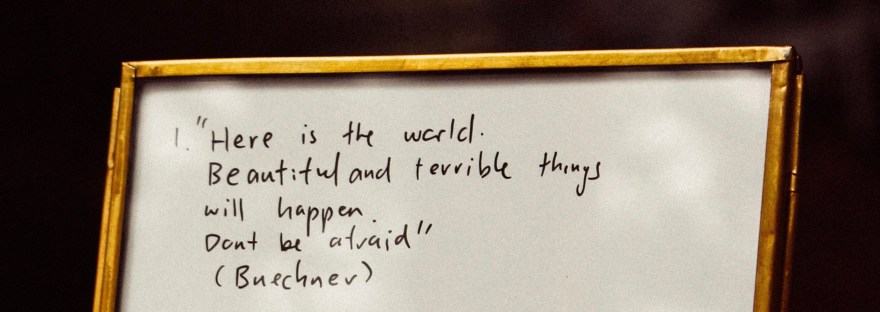 1. "Here is the world.
Beautiful and terrible things
will happen.
Dont be afraid"
(Buechner)